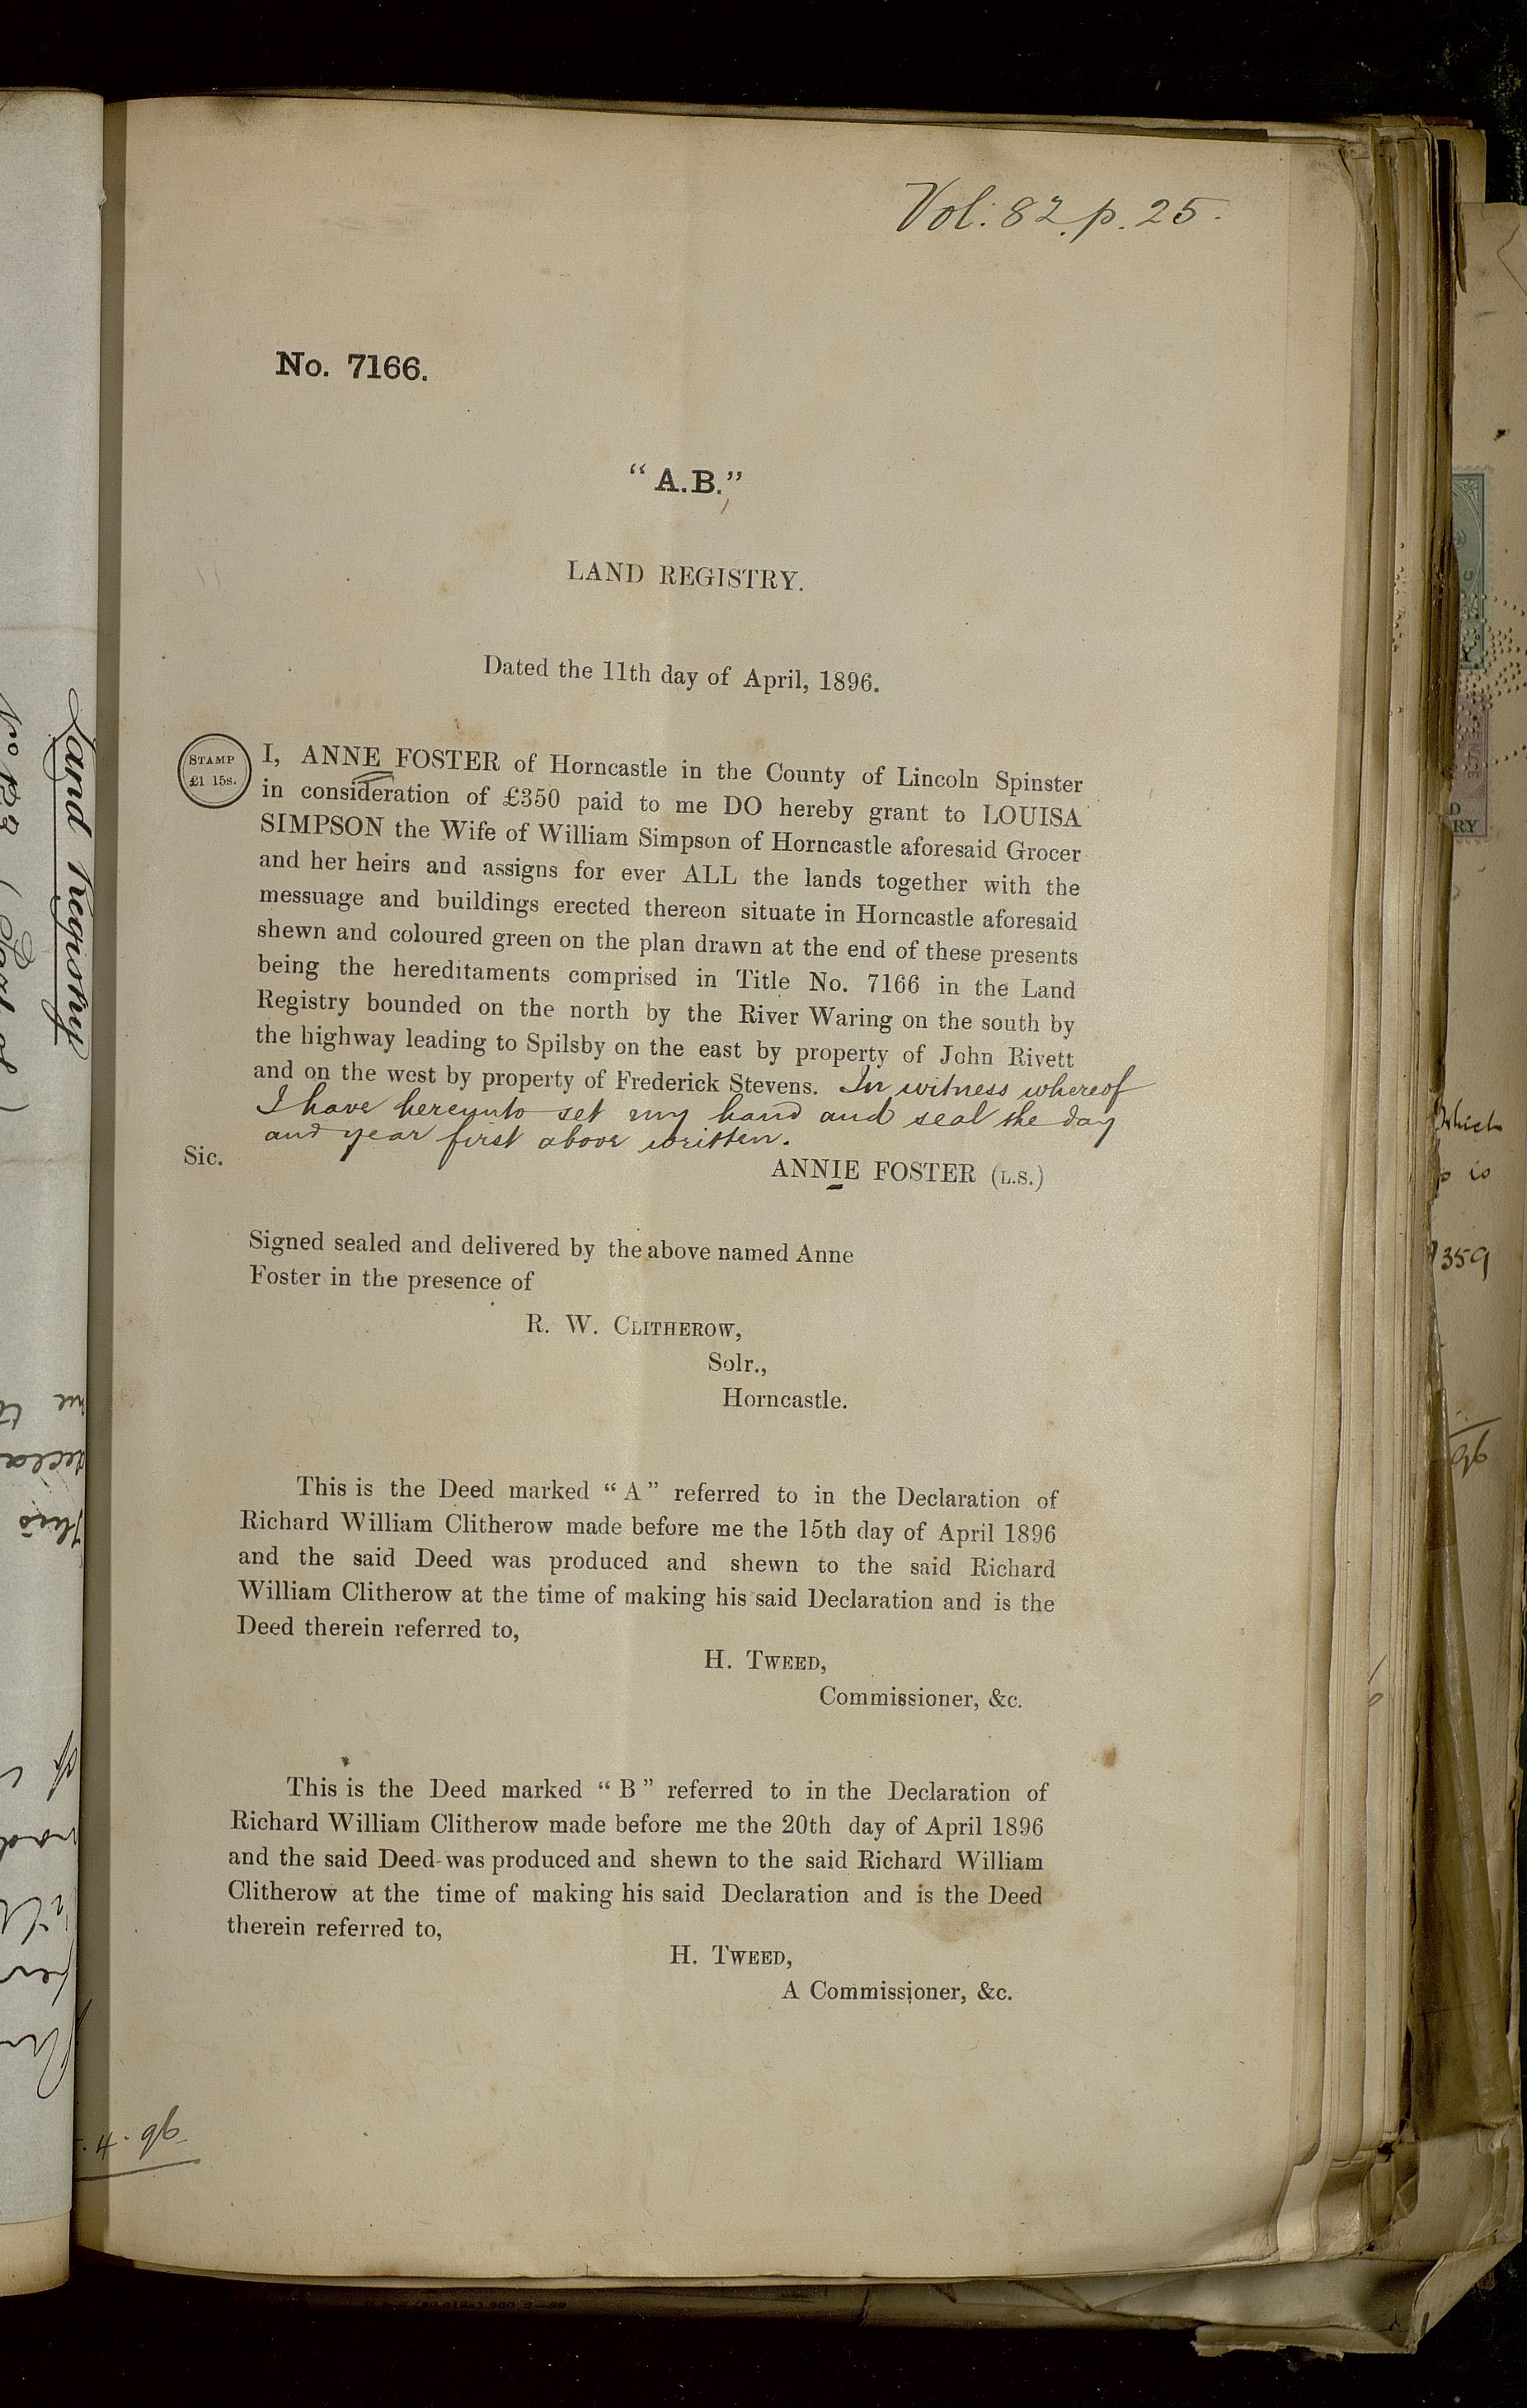 Vol: 82. p. 25.
No. 7166.
"A.B."
LAND REGISTRY.
Dated the 11th day of April, 1896.
STAMP
£1 15s.
I, ANNE FOSTER of Horncastle in the County of Lincoln Spinster
in consideration of £350 paid to me DO hereby grant to LOUISA
SIMPSON the Wife of William Simpson of Horncastle aforesaid Grocer
and her heirs and assigns for ever ALL the lands together with the
messuage and buildings erected thereon situate in Horncastle aforesaid
shewn and coloured green on the plan drawn at the end of these presents
being the hereditaments comprised in Title No. 7166 in the Land
Registry bounded on the north by the River Waring on the south by
the highway leading to Spilsby on the east by property of John Rivett
and on the west by property of Frederick Stevens. In witness whereof
I have hereunto set my hand and seal the day
and year first above written.
Sic.
ANNIE FOSTER (L.S.)
Signed sealed and delivered by the above named Anne
Foster in the presence of
R. W. CLITHEROW,
Solr.,
Horncastle.
This is the Deed marked "A" referred to in the Declaration of
Richard William Clitherow made before me the 15th day of April 1896
and the said Deed was produced and shewn to the said Richard
William Clitherow at the time of making his said Declaration and is the
Deed therein referred to,
H. TWEED,
Commissioner, &c.
This is the Deed marked "B" referred to in the Declaration of
Richard William Clitherow made before me the 20th day of April 1896
and the said Deed was produced and shewn to the said Richard William
Clitherow at the time of making his said Declaration and is the Deed
therein referred to,
H. TWEED,
A Commissioner, &c.
4. 96
Land Registry
359
RY